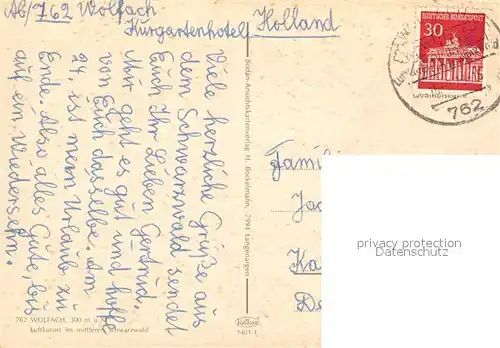 Ab/762 Wolfach
Kurgartenhotel Holland
Viele herzliche Grüße aus
dem Schwarzwald sendet
Euch Ihr Lieben Gertrud.
Mir geht es gut und hoffe
von Euch dasselbe. Am
24. ist mein Urlaub zu
Ende. Also alles Gute, bis
auf ein Wiedersehn.
Bodan-Ansichtskartenverlag H. Bockelmann, 7994 Langenargen
762 WOLFACH, 300 m ü.
Luftkurort im mittleren Schwarzwald
1401/1
DEUTSCHE BUNDESPOST
30
762
Famili
Ja
Ka
privacy protection
Datenschutz